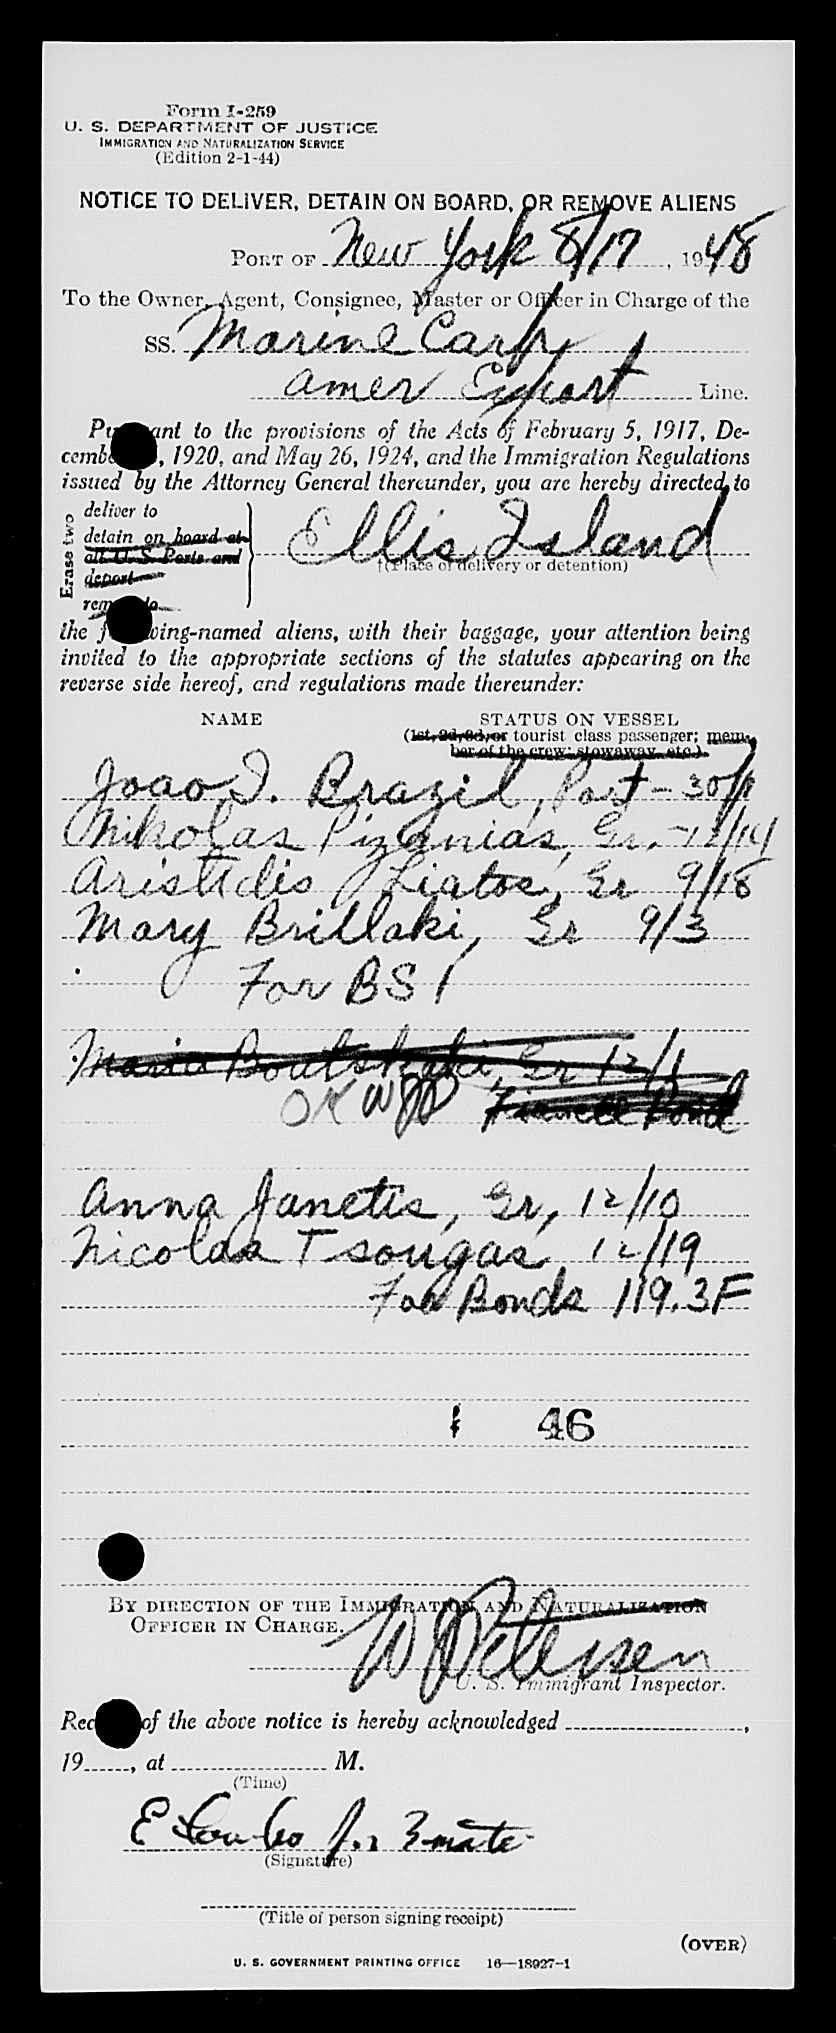 Form I-259
U. S. DEPARTMENT OF JUSTICE
IMMIGRATION AND NATURALIZATION SERVICE
(Edition 2-1-44)
NOTICE TO DELIVER, DETAIN ON BOARD, OR REMOVE ALIENS
PORT OF New York 8/17, 1948
To the Owner, Agent, Consignee, Master or Officer in Charge of the
SS. Marine Carp
Amer Export Line.
Pursuant to the provisions of the Acts of February 5, 1917, De-
cember , 1920, and May 26, 1924, and the Immigration Regulations
issued by the Attorney General thereunder, you are hereby directed to
Erase two
deliver to
detain on board at
all U. S. Ports and
deport
remove to
Ellis Island
†(Place of delivery or detention)
the following-named aliens, with their baggage, your attention being
invited to the appropriate sections of the statutes appearing on the
reverse side hereof, and regulations made thereunder:
NAME STATUS ON VESSEL
(1st, 2d, 3d, or tourist class passenger; mem-
ber of the crew; stowaway, etc.)
Joao I. Brazil, Port - 30/
Nikolas Gr. - 12/14
Aristidis Liatos, Gr 9/18
Mary Brillaki, Gr 9/3
For BSI
Maria Boutskaki, Gr 12/1
OK WJP Fiancee Bond
Anna Janetis, Gr, 12/10
Nicolas Tsougas, 12/19
For Bonds 119.3F
46
BY DIRECTION OF THE IMMIGRATION AND NATURALIZATION
OFFICER IN CHARGE.
W J Petersen
U. S. Immigrant Inspector.
Receipt of the above notice is hereby acknowledged ,
19 , at M.
(Time)
E for 3 mate
(Signature)
(Title of person signing receipt)
(OVER)
U. S. GOVERNMENT PRINTING OFFICE 16—18927-1